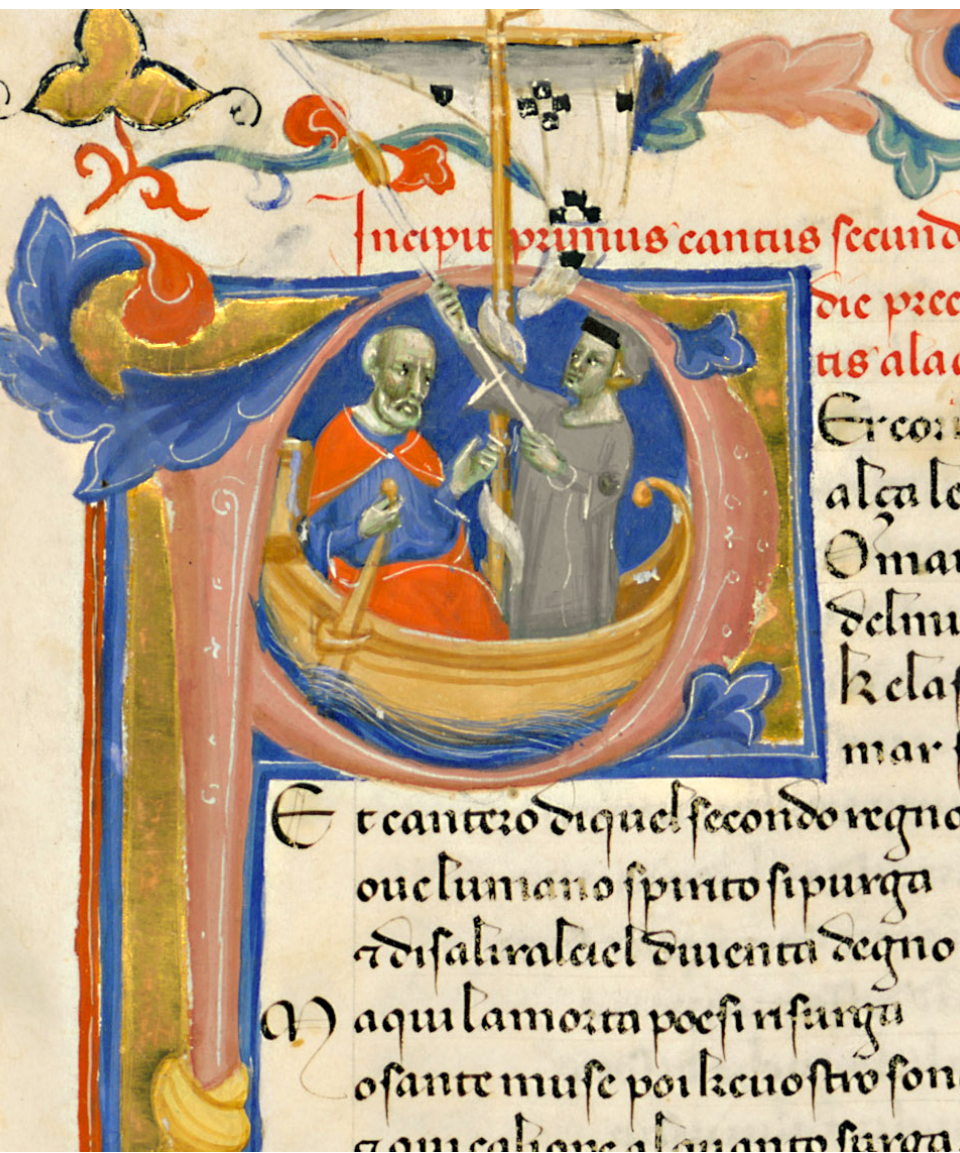 Incipit primus cantus secund
die prec
tis ala
Er cor
alça le
O mai
del mi
ke las
mar s
Et cantero di quel secondo regno
oue lumano spirito si purga
⁊ di salir al ciel diuenta degno
Ma qui la morta poesi risurga
o sante muse poi ke uostro son
⁊ qui caliope alquanto surga